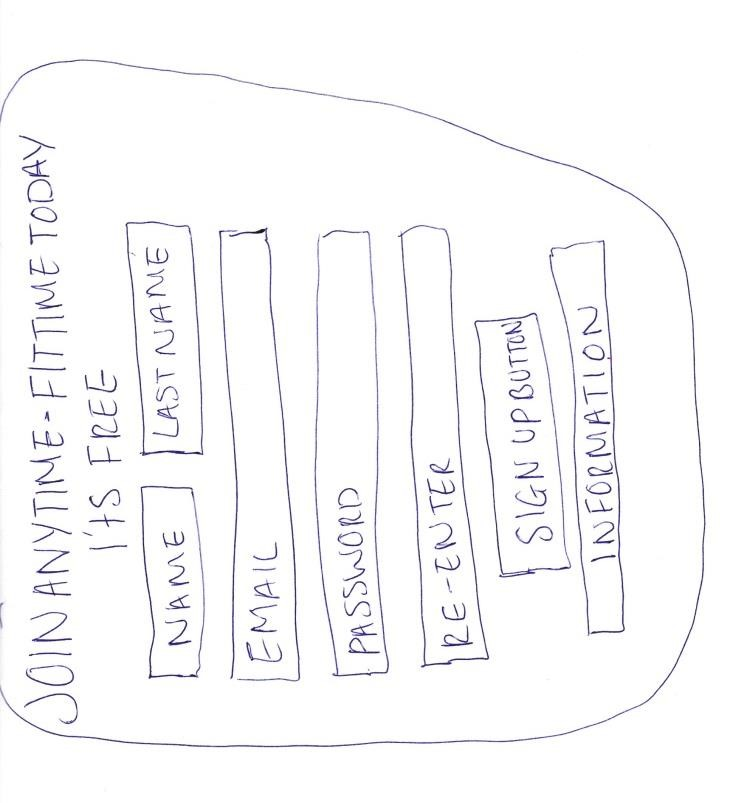 JOIN ANYTIME-FITTIME TODAY
I'tS FREE
NAME LAST NAME
EMAIL
PASSWORD
RE-ENTER
SIGN UP BUTTON
INFORMATION